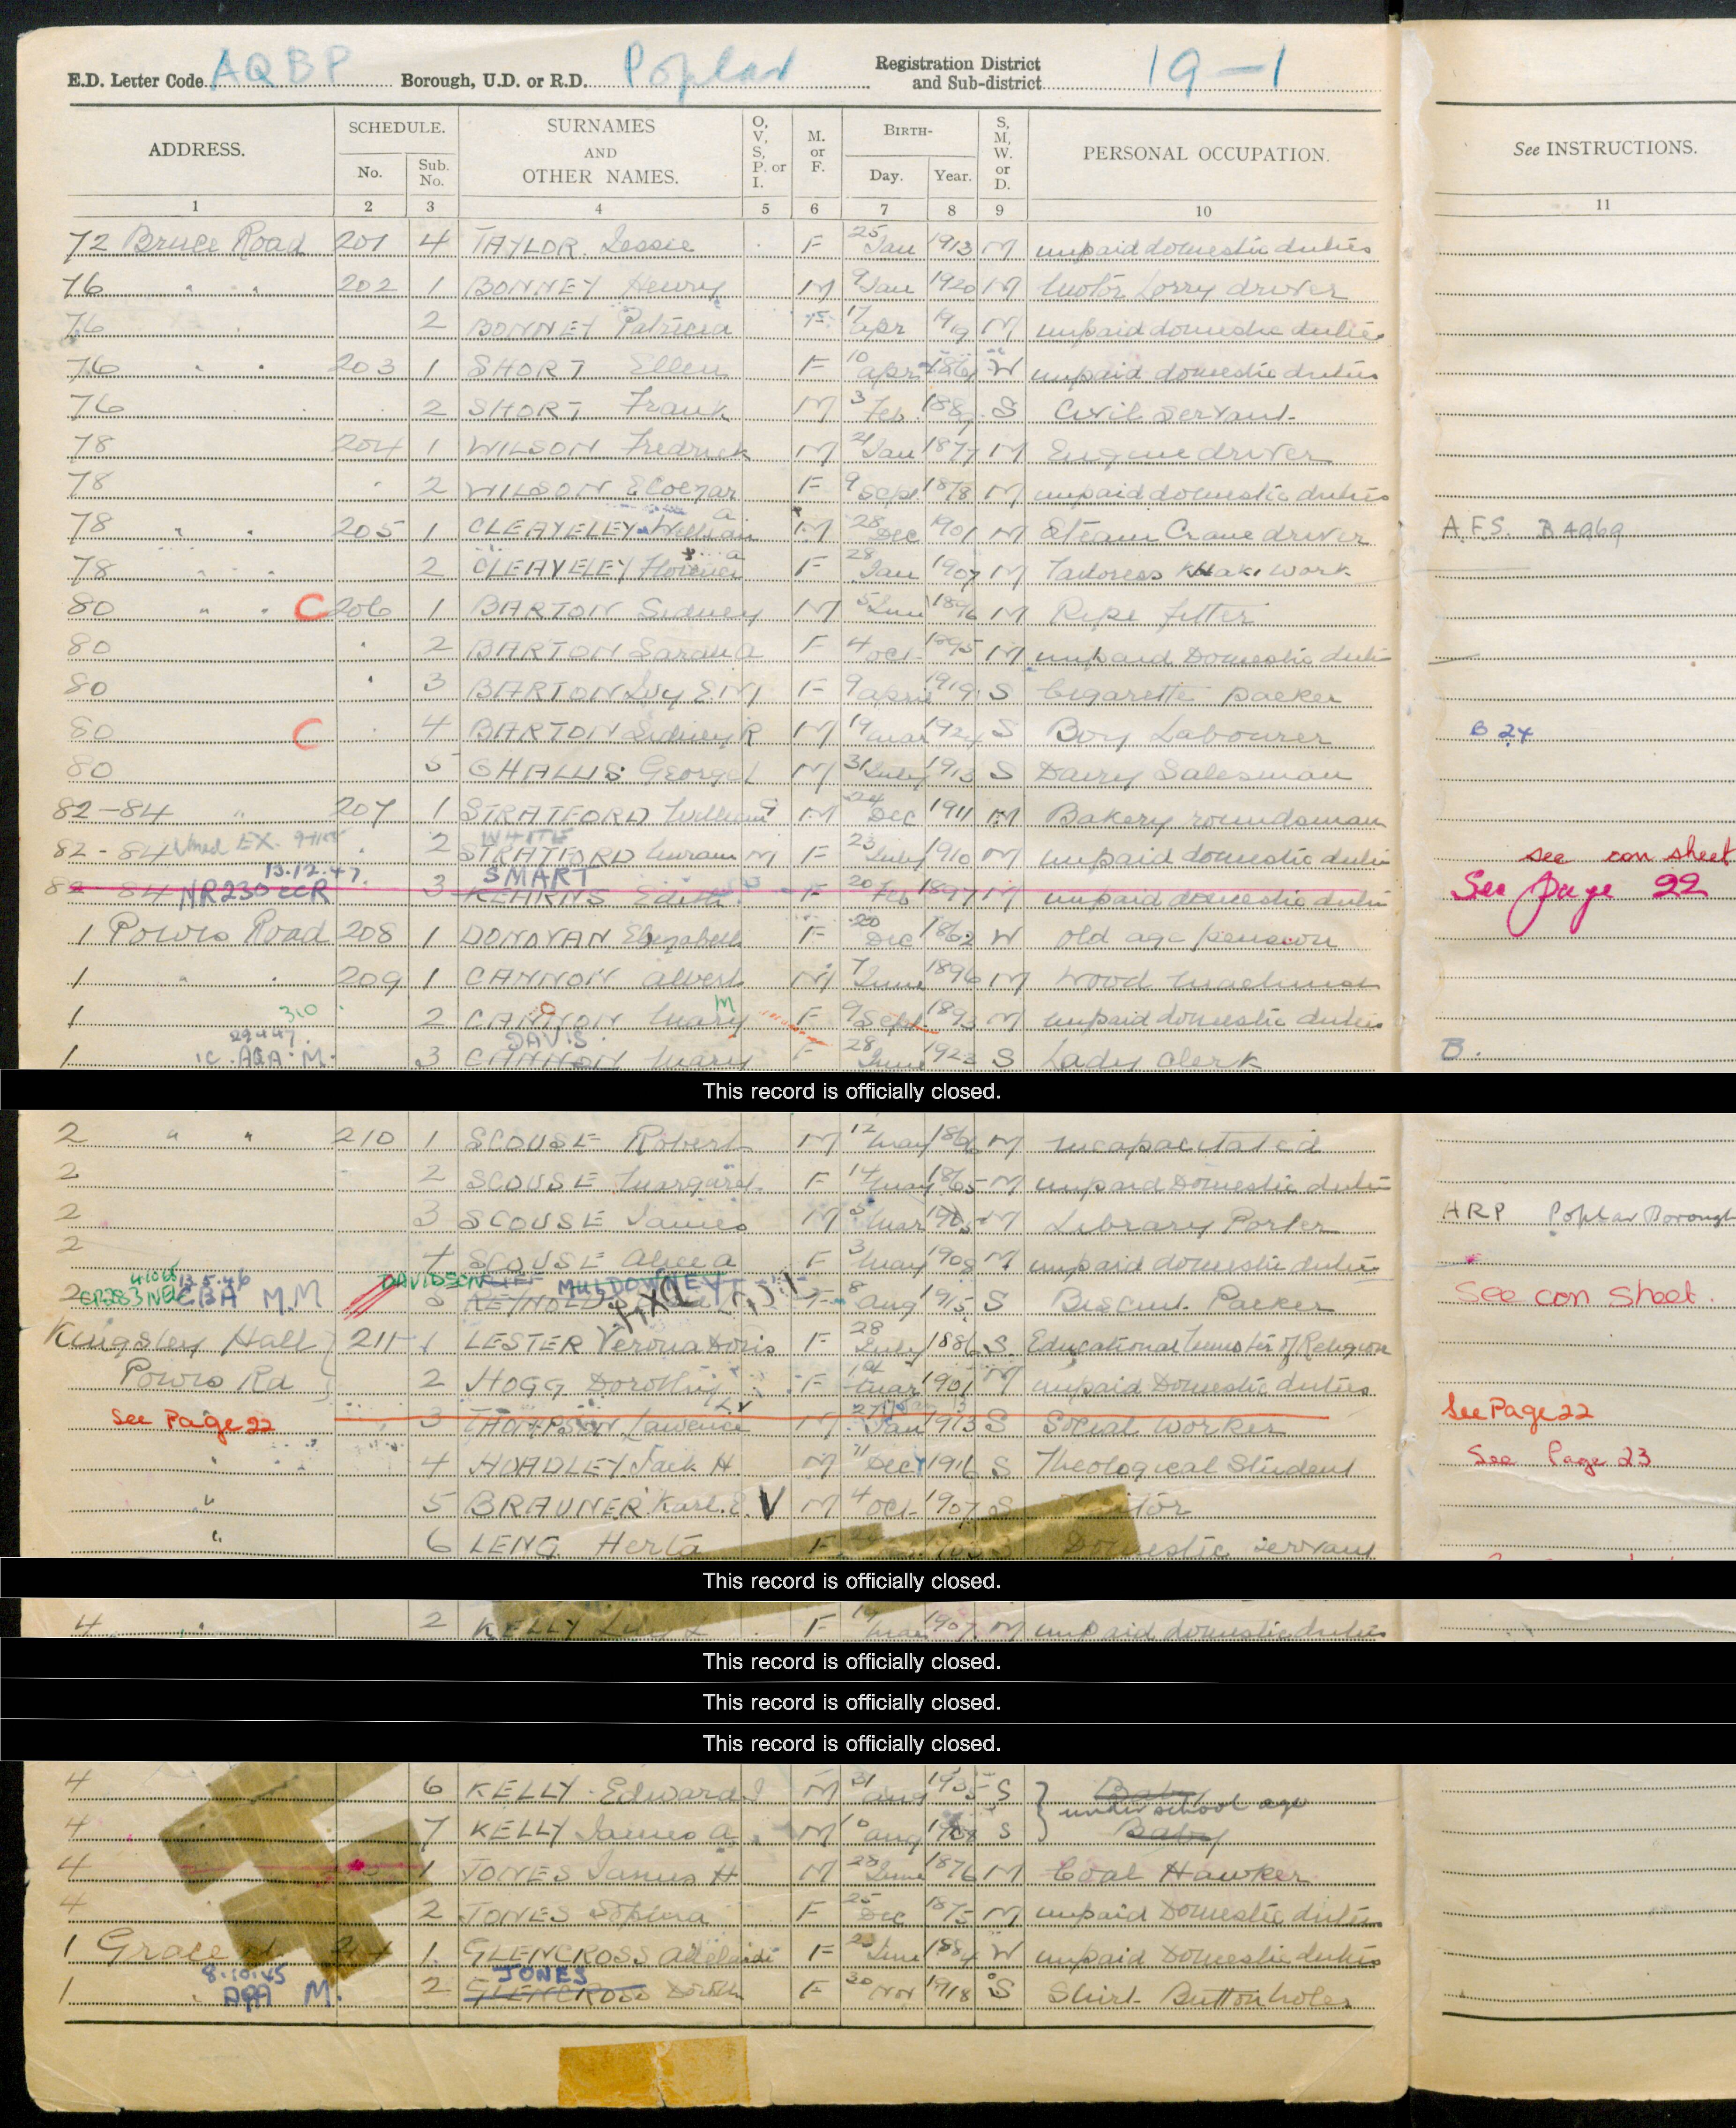 E.D. Letter Code AQBP Borough, U.D. or R.D. Poplar Registration District and Sub-district 19-1
ADDRESS. SCHEDULE. No. Sub. No. SURNAMES AND OTHER NAMES. O, V, S, P. or I. M. or F. BIRTH- Day. Year. S, M, W. or D. PERSONAL OCCUPATION. See INSTRUCTIONS.
1 2 3 4 5 6 7 8 9 10 11
72 Bruce Road 201 4 TAYLOR Jessie F 25 Jan 1913 M unpaid domestic duties
76 " " 202 1 BONNEY Henry M 9 Jan 1920 M Motor Lorry driver
76 2 BONNEY Patricia F 17 Apr 1919 M unpaid domestic duties
76 " " 203 1 SHORT Ellen F 10 Apr W unpaid domestic duties
76 2 SHORT Frank M 3 Feb 1887 S Civil Servant
78 204 1 WILSON Fredrick M 21 Jan 1877 M Engine driver
78 2 WILSON F 9 Sept 1878 M unpaid domestic duties
78 " " 205 1 CLEAVELEY William A M 28 Dec 1901 M Steam Crane driver A.F.S. B 4969
78 " " 2 CLEAVELEY Florence A F 28 Jan 1907 M Tailoress Khaki Work
80 " " C 206 1 BARTON Sidney M 5 1896 M Pipe fitter
80 2 BARTON Sarah A F 4 Oct 1895 M unpaid Domestic duties
80 3 BARTON Ivy E.M F 9 April 1919 S Cigarette packer
80 C 4 BARTON Sidney R M 19 Mar 1924 S Boy Labourer B 24
80 5 George L M 31 July 1913 S Dairy Salesman
82-84 " 207 1 STRATFORD William G M 24 Dec 1911 M Bakery roundsman
WHITE
82-84 EX. 2 STRATFORD M F 23 July 1910 M unpaid domestic duties see con sheet
13.12.47. SMART
82-84 NR230 CCR 3 KEARNS Edith F 20 Feb 1897 M unpaid domestic duties See page 22
1 Powis Road 208 1 DONOVAN Elizabeth F 20 Dec 1862 W old age pension
1 " " 209 1 CANNON Albert M 7 June 1896 M Wood Machinist
1 310 2 CANNON Mary M F 9 Sept 1893 M unpaid domestic duties
29.4.47. DAVIS
1 3 CANNON Mary F 28 June 1923 S Lady Clerk B.
This record is officially closed.
2 " " 210 1 SCOUSE Robert M 12 May M Incapacitated
2 2 SCOUSE Margaret F 14 May 1865 M unpaid Domestic duties
2 3 SCOUSE James M 5 Mar M Library Porter ARP Poplar Borough
2 4 SCOUSE Alice A F 3 May 1908 M unpaid domestic duties
13.5.46 DAVIDSON MULDOWNEY
2 EBA M.M 5 REYNOLDS F 8 Aug 1915 S Biscuit Packer See con sheet.
Kingsley Hall 211 1 LESTER Verona Doris F 28 July 1886 S. Educational Minister of Religion
Powis Rd 2 HOGG Dorothy F Mar 1901 M unpaid Domestic duties
See Page 22 3 THOMPSON Lawrence M 27 Jan 1913 S Social Worker See Page 22
" 4 HOADLEY Jack H. M 11 Dec 1916 S Theological Student See Page 23
" 5 BRAUNER Karl. E. V M 4 Oct 1907 S
" 6 LENG Herta F Domestic servant
This record is officially closed.
4 " 2 KELLY F Mar 1907 M unpaid domestic duties
This record is officially closed.
This record is officially closed.
This record is officially closed.
4 6 KELLY Edward J M 31 Aug 1935 S Baby
under school age
4 7 KELLY James A. M Aug 1938 S Baby
4 1 JONES James H M 28 June 1876 M Coal Hawker
4 2 JONES Sophia F 25 Dec 1875 M unpaid Domestic duties
1 Grace 1. GLENCROSS Adelaide F June 1884 W unpaid Domestic duties
8.10.45 JONES
1 M. 2 GLENCROSS F 20 Nov 1918 S Shirt Button holer